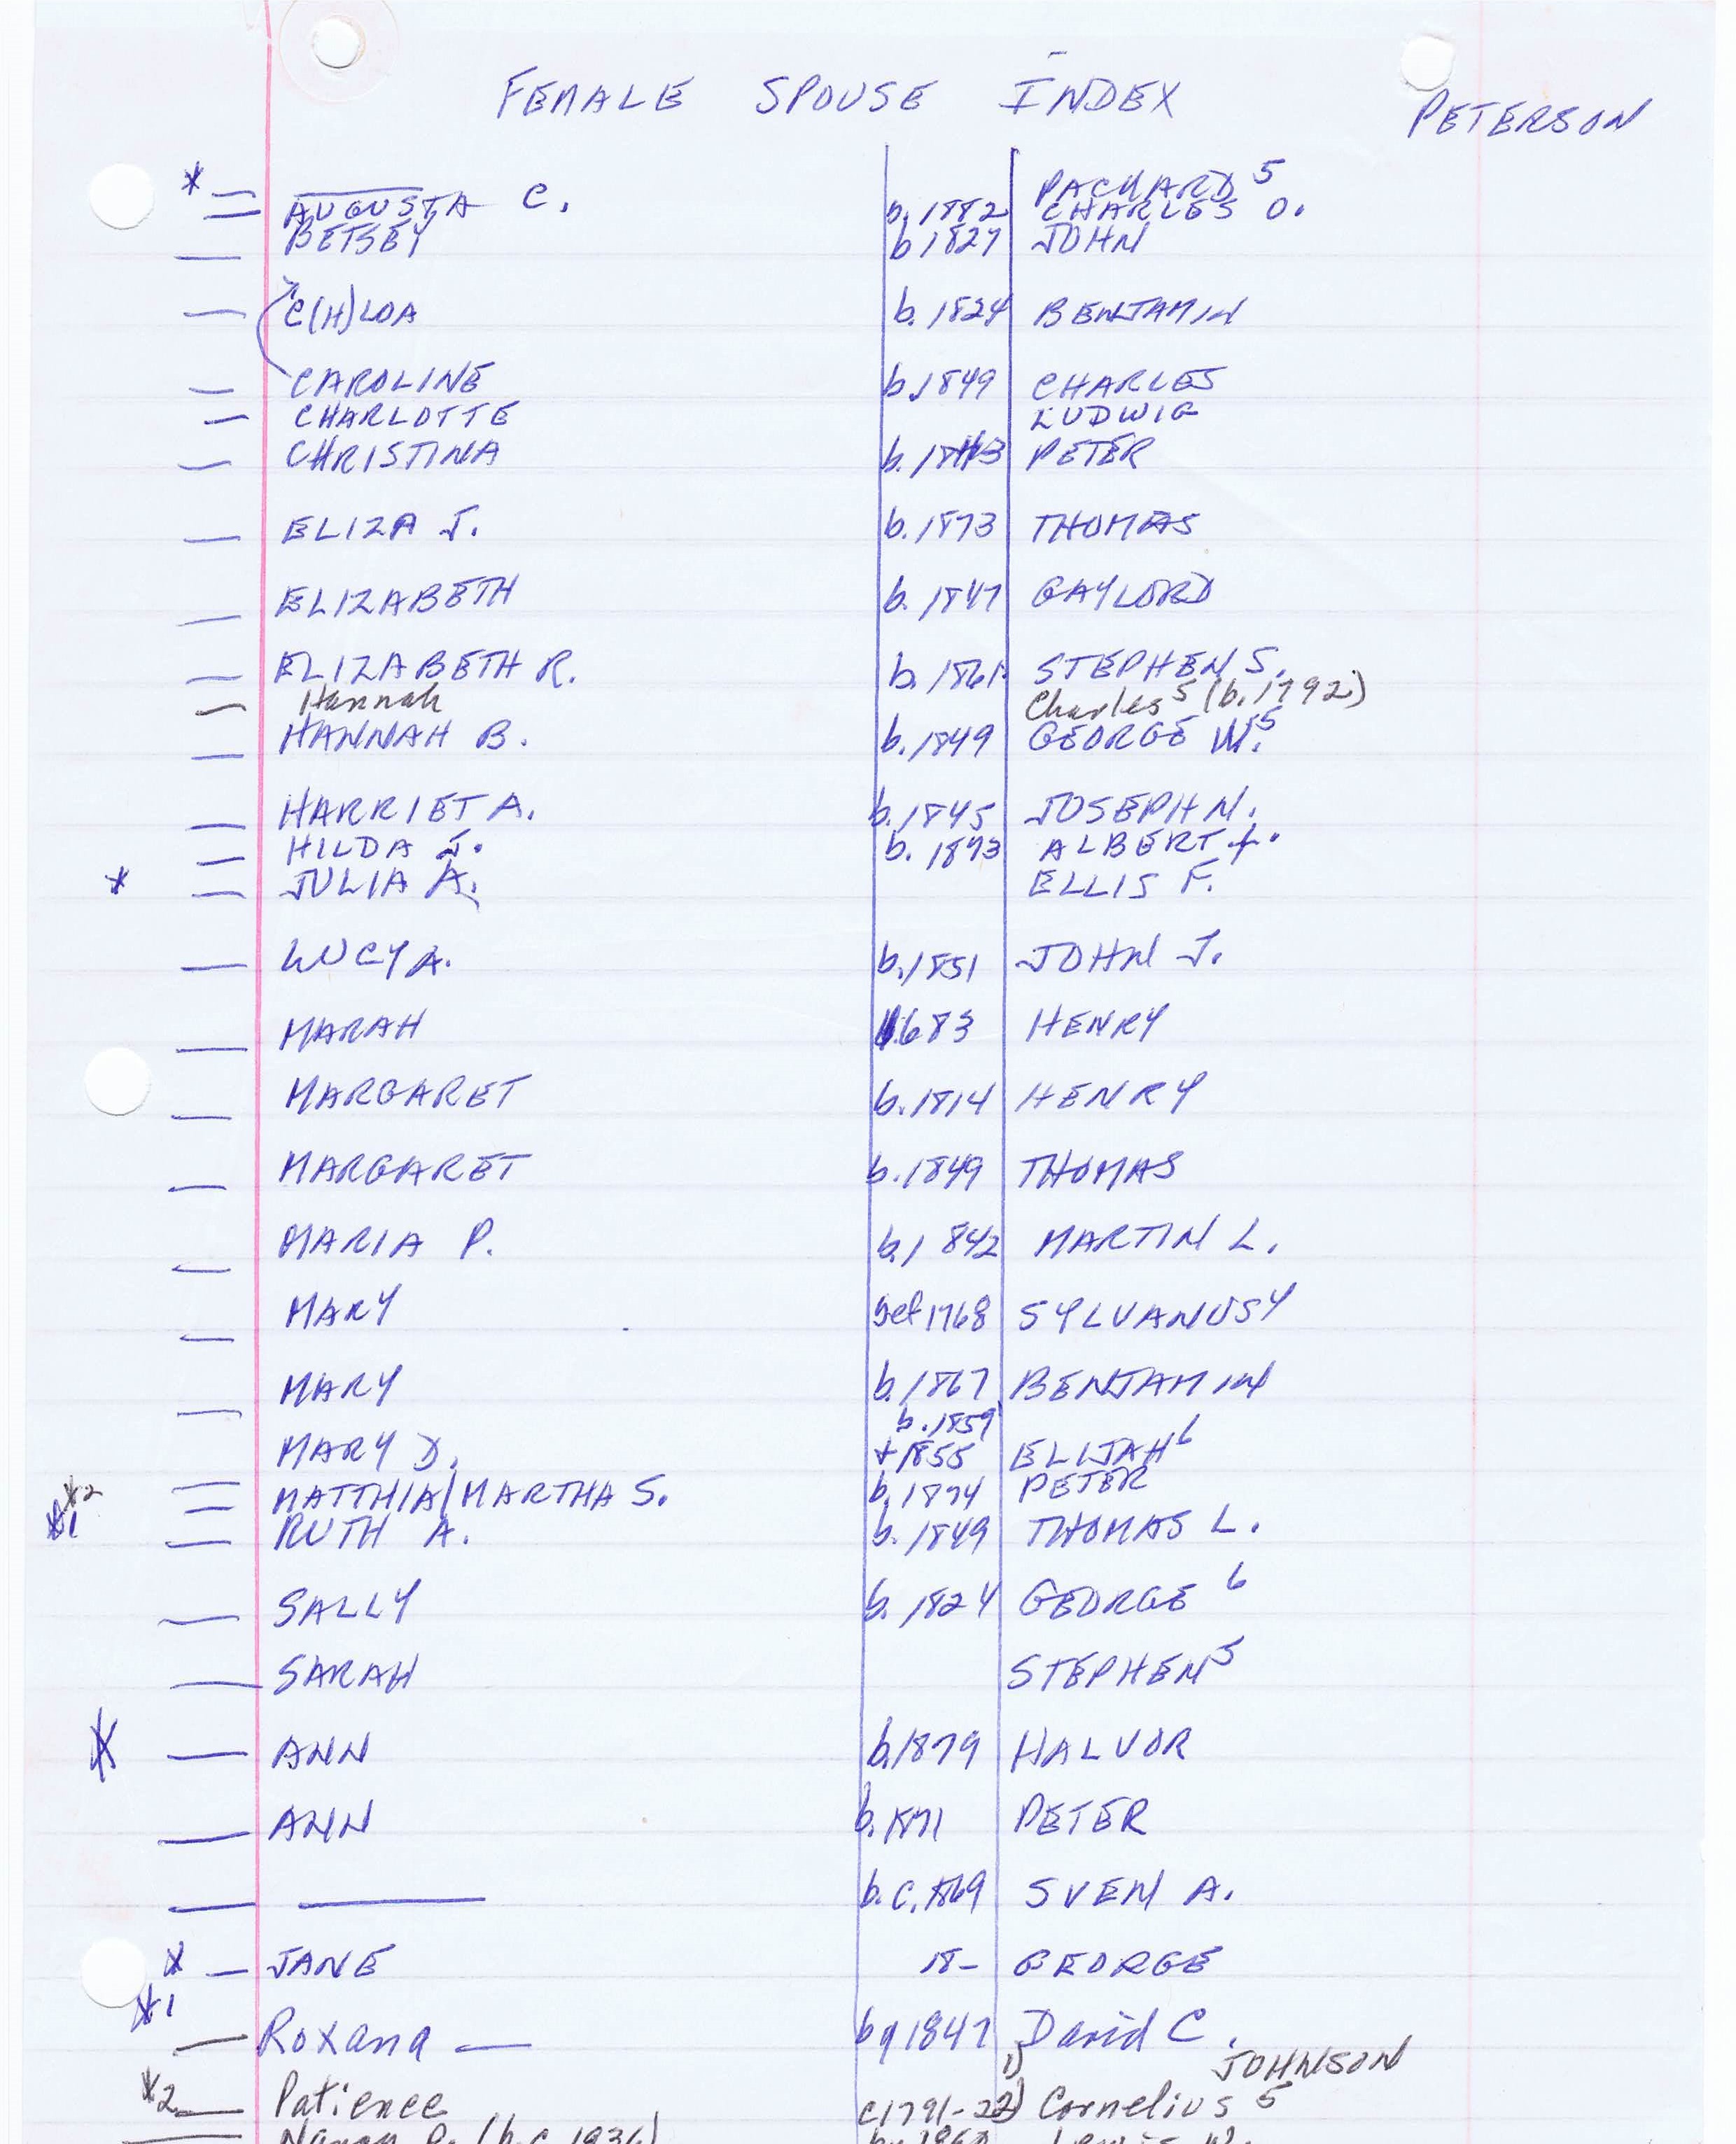 FEMALE SPOUSE INDEX
PETERSON
* — ——— PACKARD 5
— AUGUSTA C. b. 1882 CHARLES O.
— BETSEY b 1827 JOHN
— C(H)LOA b. 1824 BENJAMIN
— CAROLINE b. 1849 CHARLES
— CHARLOTTE LUDWIG
— CHRISTINA b. 1843 PETER
— ELIZA J. b. 1873 THOMAS
— ELIZABETH b. 1847 GAYLORD
— ELIZABETH R. b. 1861 STEPHEN S.
— Hannah Charles 5 (b. 1792)
— HANNAH B. b. 1849 GEORGE W. 5
— HARRIET A. b. 1845 JOSEPH N.
— HILDA J. b. 1893 ALBERT
* — JULIA A. ELLIS F.
— LUCY A. b. 1851 JOHN J.
— MARAH 1683 HENRY
— MARGARET b. 1814 HENRY
— MARGARET b. 1849 THOMAS
— MARIA P. b. 1842 MARTIN L.
— MARY bef 1768 SYLVANUS 4
— MARY b. 1867 BENJAMIN
b. 1859
— MARY D. + 1855 ELIJAH 6
*2 — MATTHIA/MARTHA S. b. 1874 PETER
*1 — RUTH A. b. 1849 THOMAS L.
— SALLY b. 1824 GEORGE 6
— SARAH STEPHEN 5
* — ANN b. 1879 HALVOR
— ANN b. 1871 PETER
— ——— b. c. 1869 SVEN A.
* — JANE 18- GEORGE
*1 — Roxana — b 1847 David C.
1) JOHNSON
*2 — Patience c1791- 2) Cornelius 5
Nancy (b. c. 1936) Lewis W.